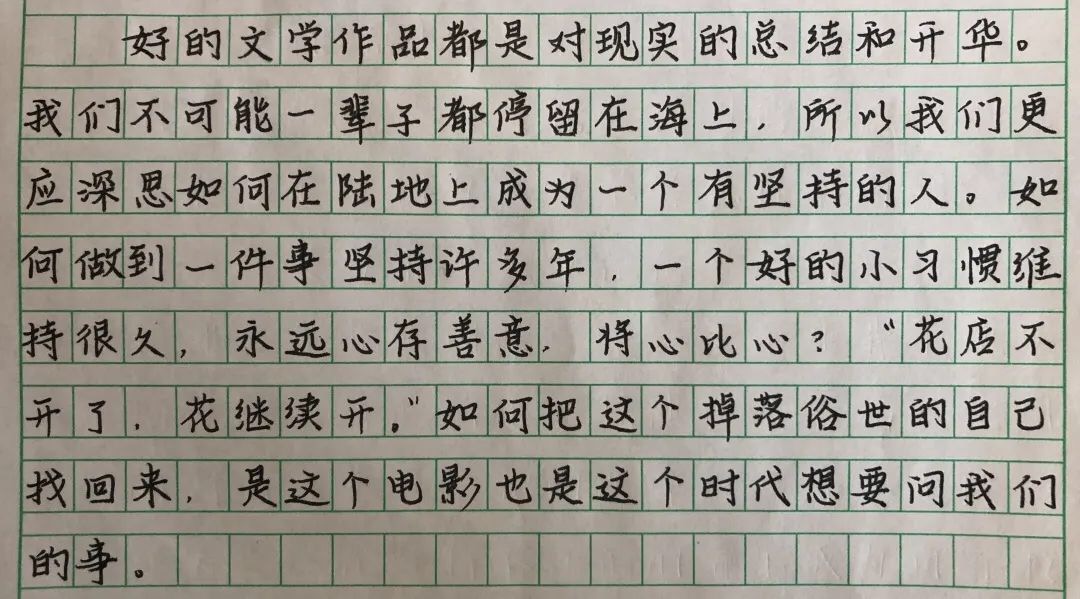 好的文学作品都是对现实的总结和开华。
我们不可能一辈子都停留在海上，所以我们更
应深思如何在陆地上成为一个有坚持的人。如
何做到一件事坚持许多年，一个好的小习惯维
持很久，永远心存善意，将心比心？“花店不
开了，花继续开。”如何把这个掉落俗世的自己
找回来，是这个电影也是这个时代想要问我们
的事。